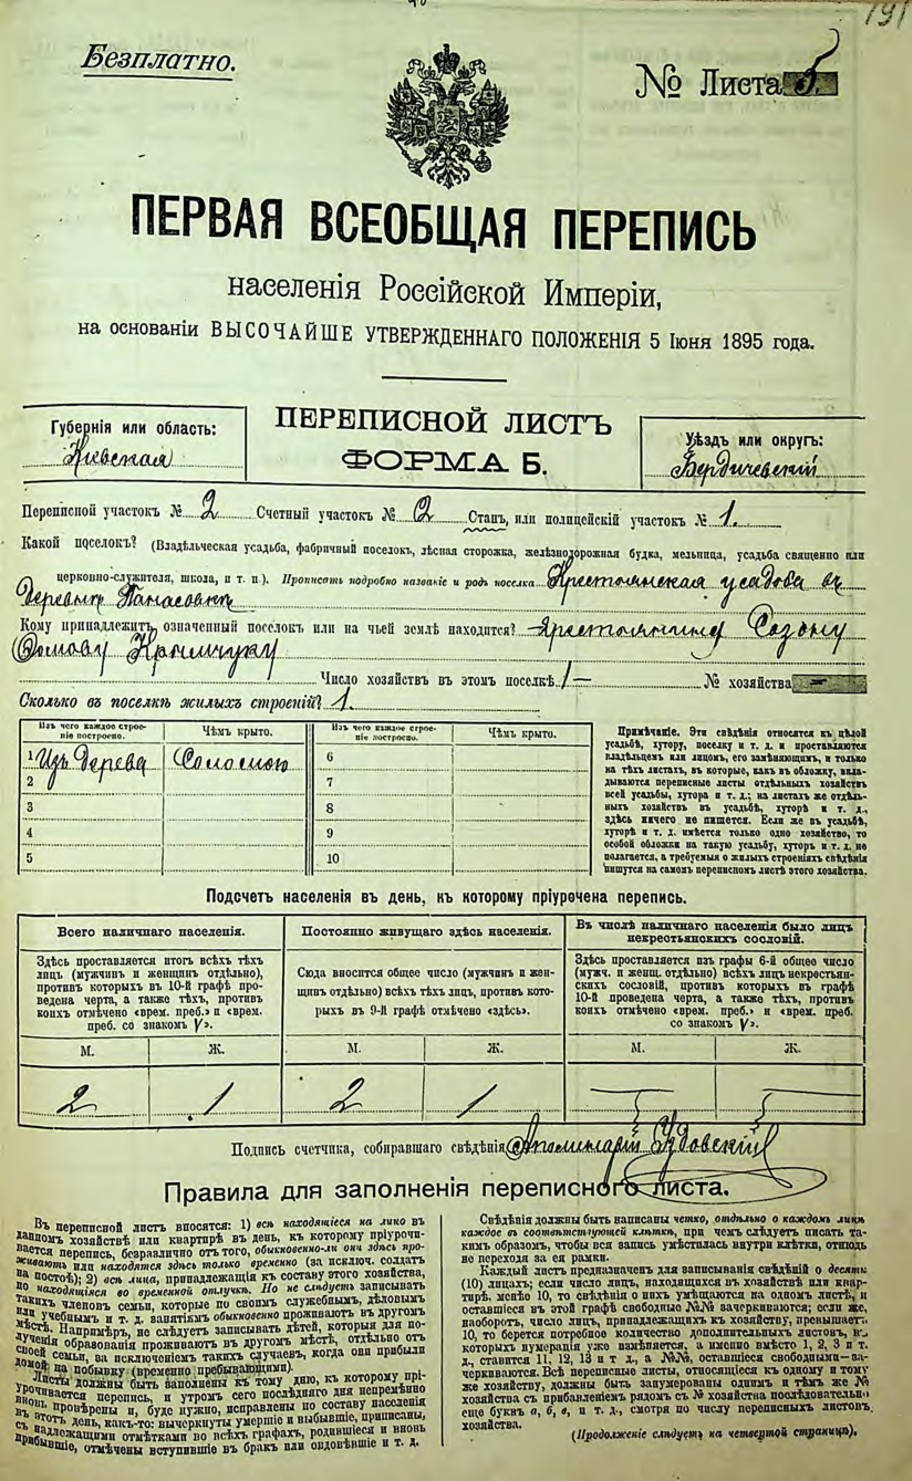 191
Безплатно.
№ Листа 5.
ПЕРВАЯ ВСЕОБЩАЯ ПЕРЕПИСЬ
населенія Россійской Имперіи,
на основаніи ВЫСОЧАЙШЕ УТВЕРЖДЕННАГО ПОЛОЖЕНІЯ 5 Іюня 1895 года.
Губернія или область:
Кіевская
ПЕРЕПИСНОЙ ЛИСТЪ
ФОРМА Б.
Уѣздъ или округъ:
Бердичевскій
Переписной участокъ № 2 Счетный участокъ № 2 Станъ, или полицейскій участокъ № 1.
Какой поселокъ? (Владѣльческая усадьба, фабричный поселокъ, лѣсная сторожка, желѣзнодорожная будка, мельница, усадьба священно или
церковно-служителя, школа, и т. п.). Прописать подробно названіе и родъ поселка Крестьянская усадьба въ
деревнѣ Панасовкѣ
Кому принадлежитъ означенный поселокъ или на чьей землѣ находится? Крестьянину Созону
Крымчуку
Число хозяйствъ въ этомъ поселкѣ 1 — № хозяйства
Сколько въ поселкѣ жилыхъ строеній? 1.
Изъ чего каждое строеніе построено.
Чѣмъ крыто.
Изъ чего каждое строеніе построено.
Чѣмъ крыто.
1 Изъ дерева Соломою
2
3
4
5
6
7
8
9
10
Примѣчаніе. Эти свѣдѣнія относятся къ цѣлой
усадьбѣ, хутору, поселку и т. д. и проставляются
владѣльцемъ или лицомъ, его замѣняющимъ, и только
на тѣхъ листахъ, въ которые, какъ въ обложку, вкла-
дываются переписные листы отдѣльныхъ хозяйствъ
всей усадьбы, хутора и т. д.; на листахъ же отдѣль-
ныхъ хозяйствъ въ усадьбѣ, хуторѣ и т. д.,
здѣсь ничего не пишется. Если же въ усадьбѣ,
хуторѣ и т. д. имѣется только одно хозяйство, то
особой обложки на такую усадьбу, хуторъ и т. д. не
полагается, а требуемыя о жилыхъ строеніяхъ свѣдѣнія
пишутся на самомъ переписномъ листѣ этого хозяйства.
Подсчетъ населенія въ день, къ которому пріурочена перепись.
Всего наличнаго населенія.
Здѣсь проставляется итогъ всѣхъ тѣхъ
лицъ (мужчинъ и женщинъ отдѣльно),
противъ которыхъ въ 10-й графѣ про-
ведена черта, а также тѣхъ, противъ
коихъ отмѣчено «врем. преб.» и «врем.
преб. со знакомъ V».
Постоянно живущаго здѣсь населенія.
Сюда вносится общее число (мужчинъ и жен-
щинъ отдѣльно) всѣхъ тѣхъ лицъ, противъ кото-
рыхъ въ 9-й графѣ отмѣчено «здѣсь».
Въ числѣ наличнаго населенія было лицъ
некрестьянскихъ сословій.
Здѣсь проставляется изъ графы 6-й общее число
(мужч. и женщ. отдѣльно) всѣхъ лицъ некрестьян-
скихъ сословій, противъ которыхъ въ графѣ
10-й проведена черта, а также тѣхъ, противъ
коихъ отмѣчено «врем. преб.» и «врем. преб.
со знакомъ V».
М. Ж. М. Ж. М. Ж.
2 1 2 1 — —
Подпись счетчика, собиравшаго свѣдѣнія Аполинарій Удовскій
Правила для заполненія переписного листа.
Въ переписной листъ вносятся: 1) всѣ находящіеся на лицо въ
данномъ хозяйствѣ или квартирѣ въ день, къ которому пріурочи-
вается перепись, безразлично отъ того, обыкновенно-ли они здѣсь про-
живаютъ или находятся здѣсь только временно (за исключ. солдатъ
на постоѣ); 2) всѣ лица, принадлежащія къ составу этого хозяйства,
но находящіяся во временной отлучкѣ. Но не слѣдуетъ записывать
такихъ членовъ семьи, которые по своимъ служебнымъ, дѣловымъ
или учебнымъ и т. д. занятіямъ обыкновенно проживаютъ въ другомъ
мѣстѣ. Напримѣръ, не слѣдуетъ записывать дѣтей, которыя для по-
лученія образованія проживаютъ въ другомъ мѣстѣ, отдѣльно отъ
своей семьи, за исключеніемъ такихъ случаевъ, когда они прибыли
домой на побывку (временно пребывающими).
Листы должны быть заполнены къ тому дню, къ которому прі-
урочивается перепись, и утромъ сего послѣдняго дня непремѣнно
вновь провѣрены и, буде нужно, исправлены по составу населенія
въ этотъ день, какъ-то: вычеркнуты умершіе и выбывшіе, приписаны,
съ надлежащими отмѣтками во всѣхъ графахъ, родившіеся и вновь
прибывшіе, отмѣчены вступившіе въ бракъ или овдовѣвшіе и т. д.
Свѣдѣнія должны быть написаны четко, отдѣльно о каждомъ лицѣ
каждое въ соотвѣтствующей клѣткѣ, при чемъ слѣдуетъ писать та-
кимъ образомъ, чтобы вся запись умѣстилась внутри клѣтки, отнюдь
не переходя за ея рамки.
Каждый листъ предназначенъ для записыванія свѣдѣній о десяти
(10) лицахъ; если число лицъ, находящихся въ хозяйствѣ или квар-
тирѣ, менѣе 10, то свѣдѣнія о нихъ умѣщаются на одномъ листѣ, и
оставшіеся въ этой графѣ свободные №№ зачеркиваются; если же,
наоборотъ, число лицъ, принадлежащихъ къ хозяйству, превышаетъ
10, то берется потребное количество дополнительныхъ листовъ, въ
которыхъ нумерація уже измѣняется, а именно вмѣсто 1, 2, 3 и т.
д., ставится 11, 12, 13 и т д., а №№, оставшіеся свободными—за-
черкиваются. Всѣ переписные листы, относящіеся къ одному и тому
же хозяйству, должны быть занумерованы однимъ и тѣмъ же №
хозяйства съ прибавленіемъ рядомъ съ № хозяйства послѣдовательно
еще буквъ а, б, в, и т. д., смотря по числу переписныхъ листовъ
хозяйства.
(Продолженіе слѣдуетъ на четвертой страницѣ).